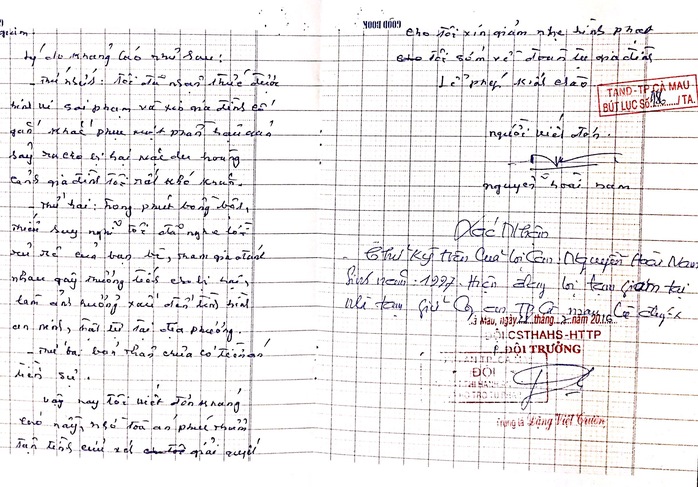 Lý do kháng cáo như sau:
- Thứ nhất: Tôi đã nhận thức được
hành vi sai phạm và xin gia đình cố
gắng khắc phục một phần hậu quả
xảy ra cho bị hại mặc dù hoàn
cảnh gia đình tôi rất khó khăn.
- Thứ hai: trong phút bồng bột,
thiếu suy nghĩ tôi đã nghe lời
rủ rê của bạn bè, tham gia đánh
nhau gây thương tích cho bị hại,
làm ảnh hưởng xấu đến tình hình
an ninh, trật tự tại địa phương.
- Thứ ba: bản thân chưa có tiền án
tiền sự.
Vậy nay tôi viết đơn kháng
cáo này, nhờ toà án phúc thẩm
tận tình cứu xét giải quyết
cho tôi xin giảm nhẹ hình phạt
cho tôi sớm về đoàn tụ gia đình
Lễ phép kính chào
TAND-TP.CÀ MAU
BÚT LỤC SỐ: /TA.
người viết đơn.
nguyễn hoài nam
Xác Nhận
Chữ ký trên của bị can: Nguyễn Hoài Nam
Sinh năm: 1997. Hiện đang bị tạm giam tại
nhà tạm giữ Công an TP Cà Mau
Cà Mau, ngày tháng năm 2016
ĐỘI CSTHAHS-HTTP
ĐỘI TRƯỞNG
ĐỘI
Trung tá Đặng Việt